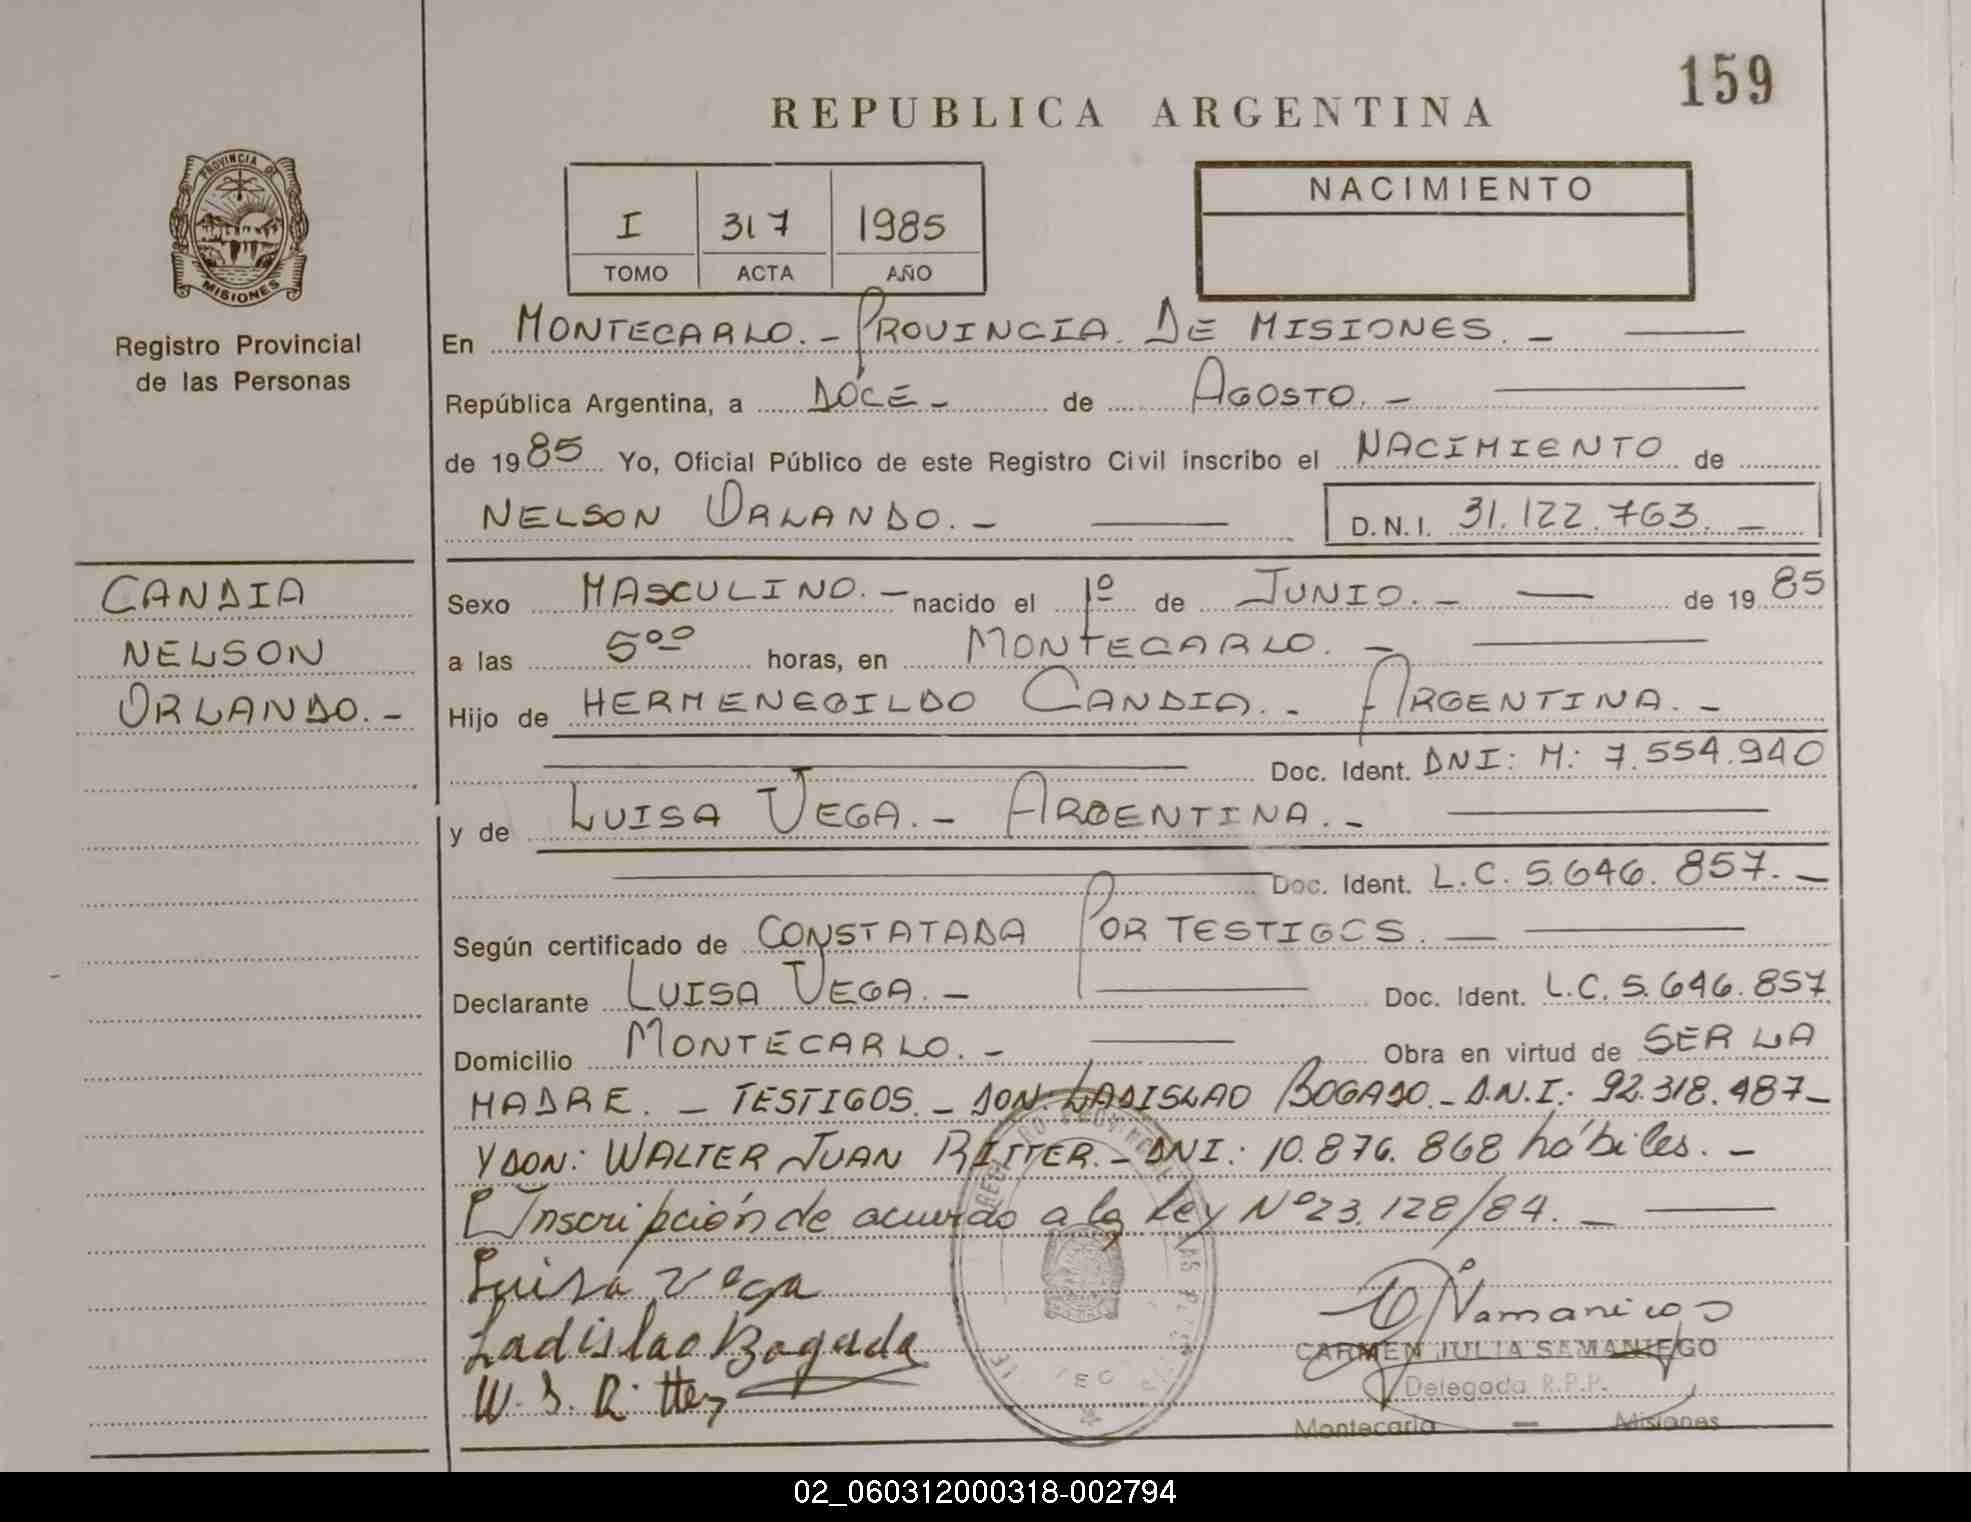 159
REPUBLICA ARGENTINA
PROVINCIA DE
MISIONES
Registro Provincial
de las Personas
I 317 1985
TOMO ACTA AÑO
NACIMIENTO
En MONTECARLO. - PROVINCIA. DE MISIONES. -
República Argentina, a DOCE - de AGOSTO. -
de 1985 Yo, Oficial Público de este Registro Civil inscribo el NACIMIENTO de
NELSON ORLANDO. - D.N.I. 31.122.763. -
CANDIA
NELSON
ORLANDO. -
Sexo MASCULINO. - nacido el 1º de JUNIO. - de 1985
a las 5ºº horas, en MONTECARLO. -
Hijo de HERMENEGILDO CANDIA. - ARGENTINA. -
Doc. Ident. DNI: M: 7.554.940
y de LUISA VEGA. - ARGENTINA. -
Doc. Ident. L.C. 5.646.857. -
Según certificado de CONSTATADA POR TESTIGOS. -
Declarante LUISA VEGA. - Doc. Ident. L.C. 5.646.857
Domicilio MONTECARLO. - Obra en virtud de SER LA
MADRE. - TESTIGOS. - DON: LADISLAO BOGADO. - D.N.I.: 92.318.487 -
Y DON: WALTER JUAN RITTER. - DNI.: 10.876.868 hábiles. -
Inscripción de acuerdo a la Ley Nº 23.128/84. -
Luisa Vega
Ladislao Bogado
W. J. Ritter
CARMEN JULIA SAMANIEGO
Delegada R.P.P.
Montecarlo - Misiones
02_060312000318-002794